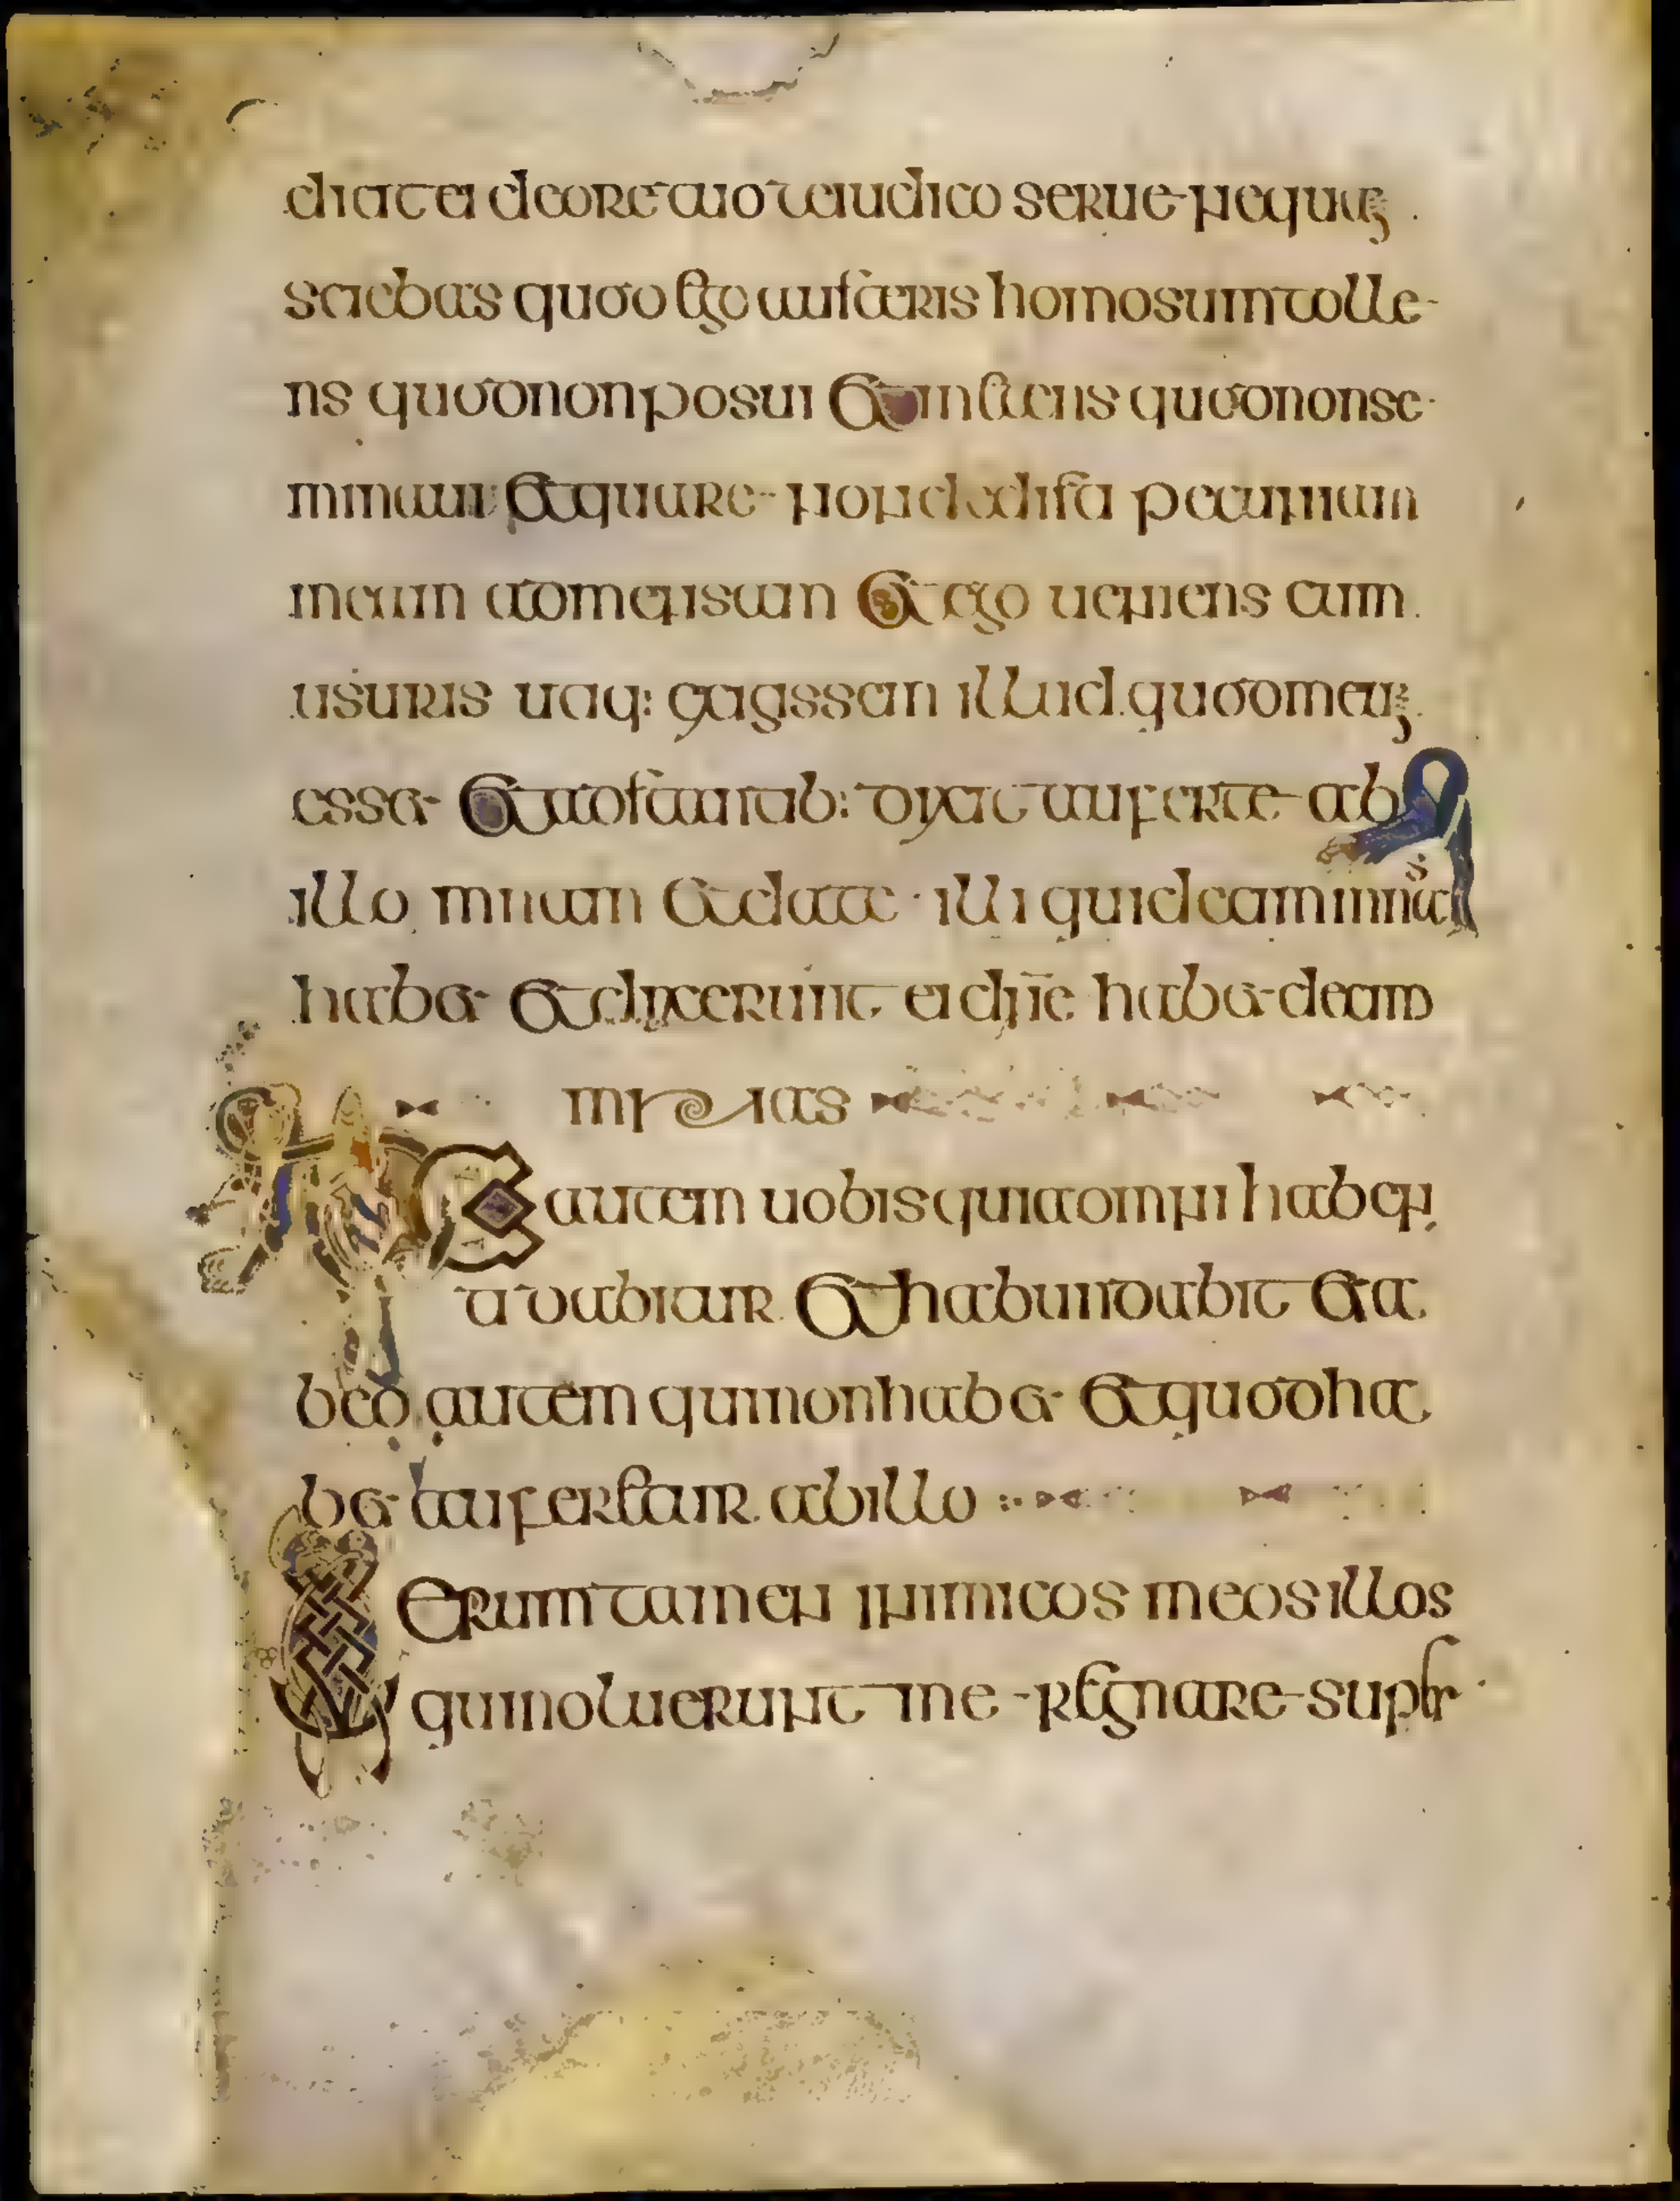 dicit ei de ore tuo te iudico serue nequam
sciebas quod ego austeris homo sum tolle
ns quod non posui et metens quod non se
minaui et quare non dedisti pecuniam
meam ad mensam et ego ueniens cum
usuris utiq: exigissem illud quod
esset et adstantib: dixit auferte ab
illo mnam et date illi qui decem mnas
habet et dixerunt ei dn̄e habet decem
mnas
autem uobis quia omni habenti
dabitur et habundabit et a
b eo autem qui non habet et quod ha
bet auferetur ab illo
Uerum tamen inimicos meos illos
qui noluerunt me regnare super